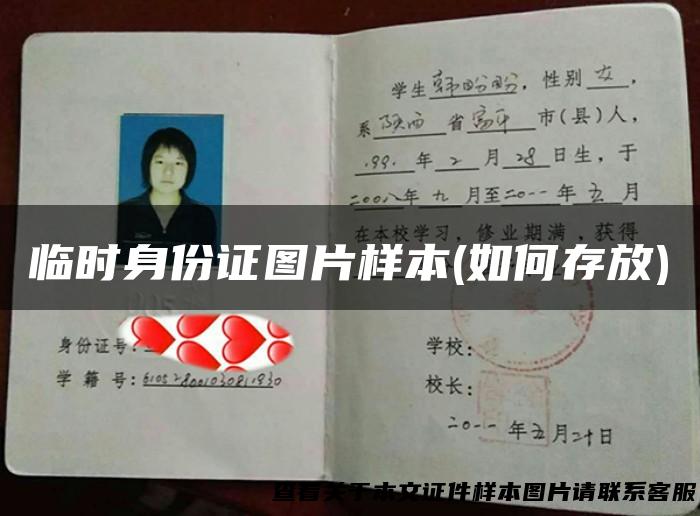 学生韩盼盼,性别女,
系陕西省富平市(县)人,
1991年2月28日生,于
二〇〇八年九月至二〇一一年五月
在本校学习,修业期满,获得
临时身份证图片样本(如何存放)
身份证号:
学籍号:
学校:
校长:
二〇一一年五月二十日
查看关于本文证件样本图片请联系客服